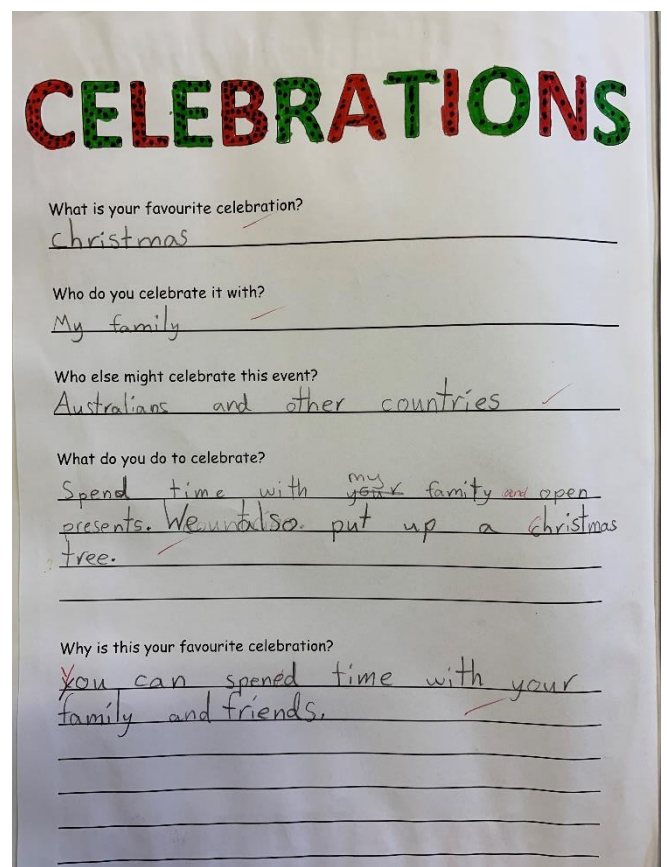 CELEBRATIONS
What is your favourite celebration?
christmas
Who do you celebrate it with?
My family
Who else might celebrate this event?
Australians and other countries
What do you do to celebrate?
Spend time with my your family and open
presents. We also put up a Christmas
tree.
Why is this your favourite celebration?
You can spened time with your
family and friends.